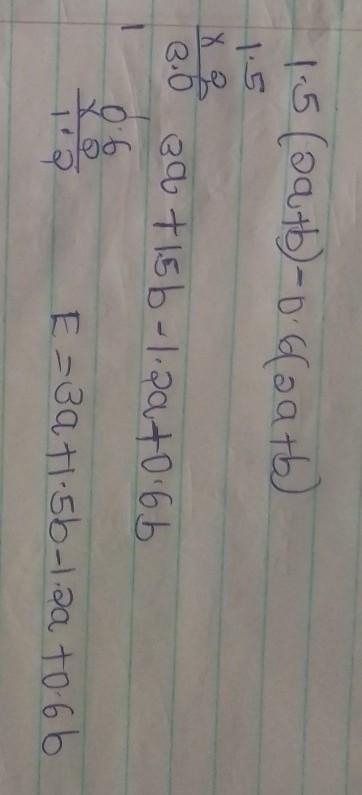 1.5 (2a+b) - 0.6(2a+b)
1.5
x 2
3.0
3a + 1.5b - 1.2a + 0.6b
1
0.6
x 2
1.2
E = 3a + 1.5b - 1.2a + 0.6b